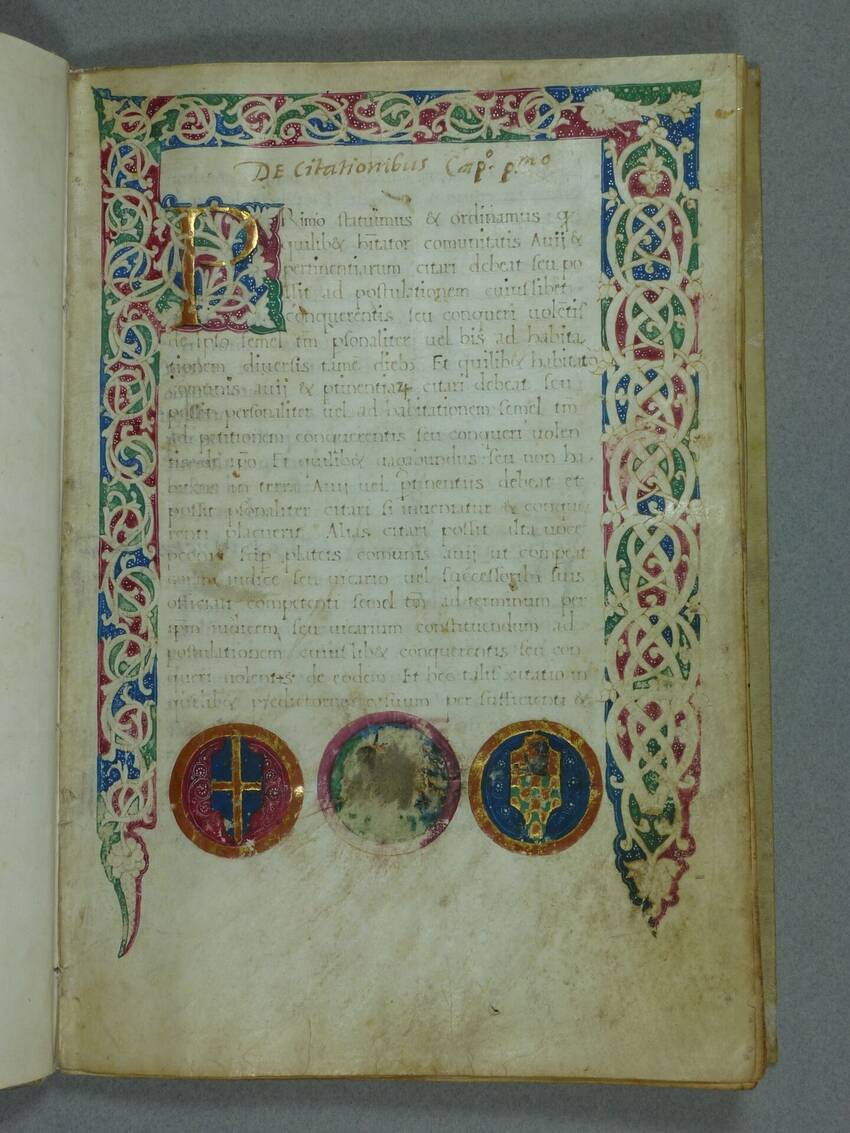 DE Citationibus Cap.º p.mo
PRimo statuimus & ordinamus q
quilib& h̄itator comunitatis Auij &
pertinentiarum citari debeat seu po
ssit ad postulationem cuiuslibet
conquerentis seu conqueri uolētis
de ipso semel tm̄ psonaliter uel bis ad habita
tionem diuersis tamē dieb; Et quilib& habitator
comunis auij & ptinentiaꝝ citari debeat seu
possit personaliter uel ad habitationem semel tm̄
ad petitionem conquerentis seu conqueri uolen
tis de ip̄o Et quilib& uagabundus seu non ha
bitans in terra Auij uel ptinentiis debeat et
possit psonaliter citari si inueniatur & conque
renti placuerit Alias citari possit alta uoce
plateis comunis auij ut compeat
iudice seu uicario uel successorib; suis
officiali competenti semel tm̄ ad terminum per
ipm̄ iudicem seu uicarium constituendum ad
postulationem cuiuslib& conquerentis seu con
queri uolentis de eodem Et hec talis citatio in
quolib& predictorum casuum per sufficienti &